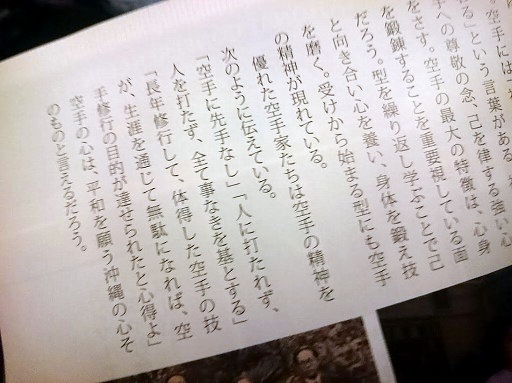 。空手には、
る」という言葉がある。
手への尊敬の念、己を律する強い心
をさす。空手の最大の特徴は、心身
を鍛錬することを重要視している面
だろう。型を繰り返し学ぶことで己
と向き合い心を養い、身体を鍛え技
を磨く。受けから始まる型にも空手
の精神が現れている。
優れた空手家たちは空手の精神を
次のように伝えている。
「空手に先手なし」「人に打たれず、
人を打たず、全て事なきを基とする」
「長年修行して、体得した空手の技
が、生涯を通じて無駄になれば、空
手修行の目的が達せられたと心得よ」
空手の心は、平和を願う沖縄の心そ
のものと言えるだろう。